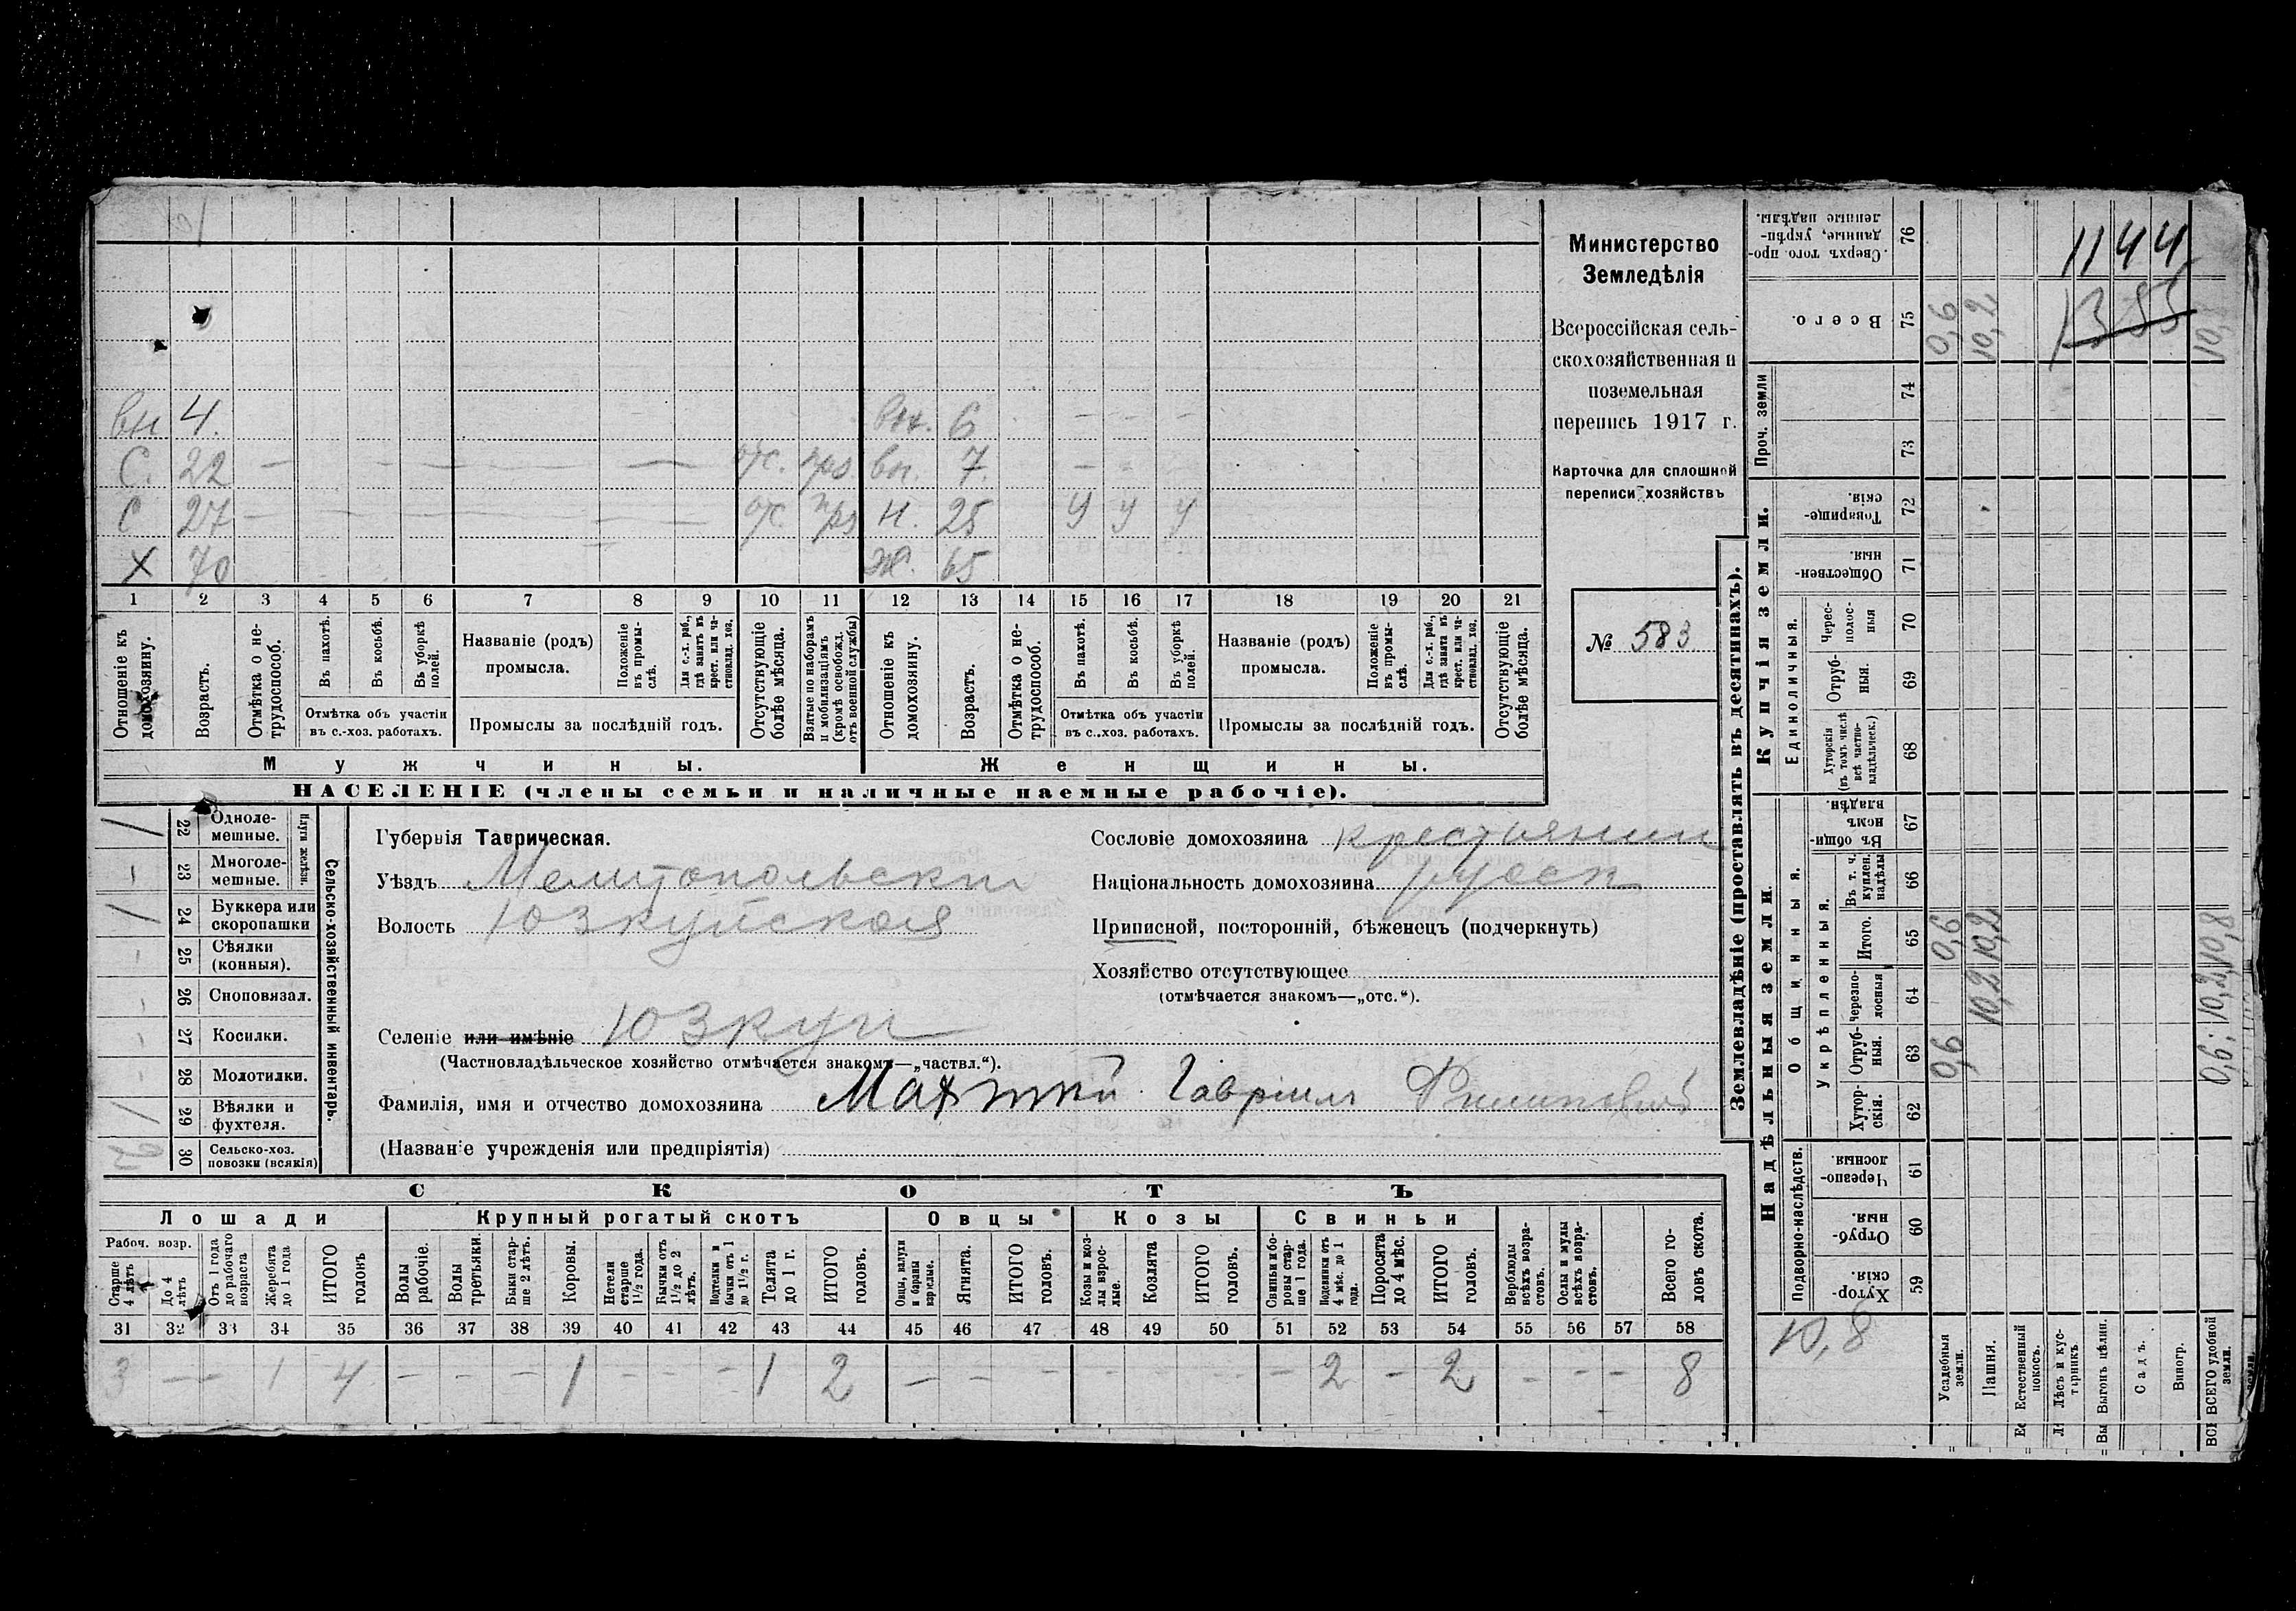 вн 4. вн. 6
С. 22 — — — — отс. прз вн. 7. — - -
С 27 — — — — отс. прз н. 25 у у у
Х 70 ж. 65
1 2 3 4 5 6 7 8 9 10 11 12 13 14 15 16 17 18 19 20 21
Отношеніе къ домохозяину.
Возрастъ.
Отмѣтка о не-
трудоспособ.
Въ пахотѣ.
Въ косьбѣ.
Въ уборкѣ полей.
Отмѣтка объ участіи
въ с.-хоз. работахъ.
Названіе (родъ)
промысла.
Положеніе въ промы-
слѣ.
Для с.-х. раб.,
гдѣ занятъ въ
крест. или ча-
стновлад. хоз.
Промыслы за послѣдній годъ.
Отсутствующіе
болѣе мѣсяца.
Взятые по наборамъ
и мобилизаціямъ
(кромѣ освобожд.
отъ военной службы)
Отношеніе къ
домохозяину.
Возрастъ.
Отмѣтка о не-
трудоспособ.
Въ пахотѣ.
Въ косьбѣ.
Въ уборкѣ
полей.
Отмѣтка объ участіи
въ с.-хоз. работахъ.
Названіе (родъ)
промысла.
Положеніе
въ промы-
слѣ.
Для с.-х. раб.,
гдѣ занята въ
крест. или ча-
стновлад. хоз.
Промыслы за послѣдній годъ.
Отсутствующіе
болѣе мѣсяца.
Мужчины. Женщины.
НАСЕЛЕНІЕ (члены семьи и наличные наемные рабочіе).
Министерство
Земледѣлія
Всероссійская сель-
скохозяйственная и
поземельная
перепись 1917 г.
Карточка для сплошной
переписи хозяйствъ
№ 583
Сельско-хозяйственный инвентарь.
Плуги желѣзн.
/ 22 Одноле-
мешные.
- 23 Многоле-
мешные.
/ 24 Буккера или
скоропашки
- 25 Сѣялки
(конныя).
- 26 Сноповязал.
- 27 Косилки.
- 28 Молотилки.
/ 29 Вѣялки и
фухтеля.
30 Сельско-хоз.
повозки (всякія)
Губернія Таврическая.
Уѣздъ Мелитопольски
Волость Юзкуйская
Селеніе или имѣніе Юзкуи
(Частновладѣльческое хозяйство отмѣчается знакомъ—„частвл.“).
Фамилія, имя и отчество домохозяина Гавріилъ
(Названіе учрежденія или предпріятія)
Сословіе домохозяина крестьянин
Національность домохозяина русск
Приписной, посторонній, бѣженецъ (подчеркнуть)
Хозяйство отсутствующее
(отмѣчается знакомъ—„отс.“).
СКОТЪ
Лошади Крупный рогатый скотъ Овцы Козы Свиньи
Рабоч. возр.
Старше
4 лѣтъ
До 4
лѣтъ
Отъ 1 года
до рабочаго
возраста
Жеребята
до 1 года
ИТОГО
головъ
Волы
рабочіе.
Волы
третьяки.
Быки стар-
ше 2 лѣтъ.
Коровы.
Нетели
старше
1½ года.
Бычки отъ
1½ до 2
лѣтъ.
Подтелки и
бычки отъ 1
до 1½ г.
Телята
до 1 г.
ИТОГО
головъ.
Овцы, валухи
и бараны
взрослые.
Ягнята.
ИТОГО
головъ.
Козы и коз-
лы взрос-
лые.
Козлята
ИТОГО
головъ.
Свиньи и бо-
ровы стар-
ше 1 года.
Подсвинки отъ
4 мѣс. до 1
года.
Поросята
до 4 мѣс.
ИТОГО
головъ.
Верблюды
всѣхъ возра-
стовъ.
Ослы и мулы
всѣхъ возра-
стовъ.
Всего го-
ловъ скота.
31 32 33 34 35 36 37 38 39 40 41 42 43 44 45 46 47 48 49 50 51 52 53 54 55 56 57 58
3 — - 1 4 - - - 1 - - - 1 2 — - - - - - - 2 - 2 - - - 8
Землевладѣніе (проставлять въ десятинахъ).
Купчія земли.
Надѣльныя земли
Сверхъ того про-
данные, укрѣп-
ленные надѣлы.
76
1144
Всего.
75
0,6
10,2
1355
Проч. земли
74
73
Товарище-
скія.
72
Обществен-
ныя.
71
Единоличныя.
Черес-
полос-
ныя
70
Отруб-
ныя.
69
Хуторскія
(въ томъ числѣ
всѣ частно-
владѣльческ.)
68
Общинныя.
Въ общин-
номъ
владѣн.
67
Укрѣпленныя.
Въ т. ч.
куплен.
надѣлы
66
Итого.
65
0,6
10,2
10,8
Черезпо-
лосныя
64
10,2
10,2
Отруб-
ныя.
63
0,6
0,6
Хутор-
скія.
62
Подворно-наслѣдств.
Черезпо-
лосныя.
61
Отруб-
ныя.
60
Хутор-
скія.
59
10,8
Усадебныя
земли.
Пашня.
Естественный
покосъ.
Лѣсъ и кус-
тарникъ
Выгонъ цѣлин.
Садъ.
Виногр.
ВСЕГО удобной
земли.